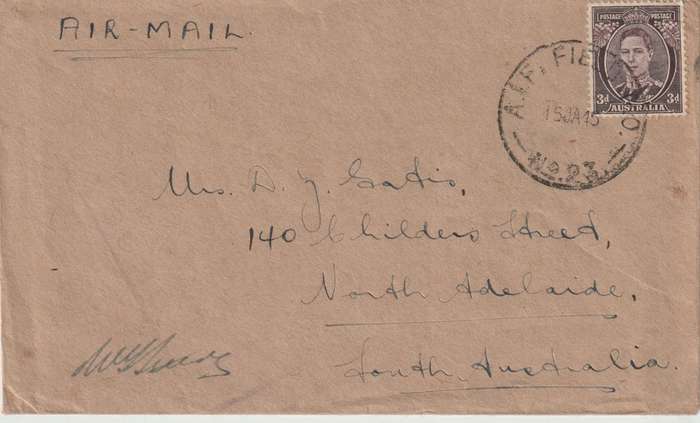 AIR-MAIL.
POSTAGE POSTAGE
3d 3d
AUSTRALIA
A.I.F. FIELD P.O.
15JA45
No. 23.
Mrs. D. J. Gatis,
140 Childers Street,
North Adelaide,
South Australia.